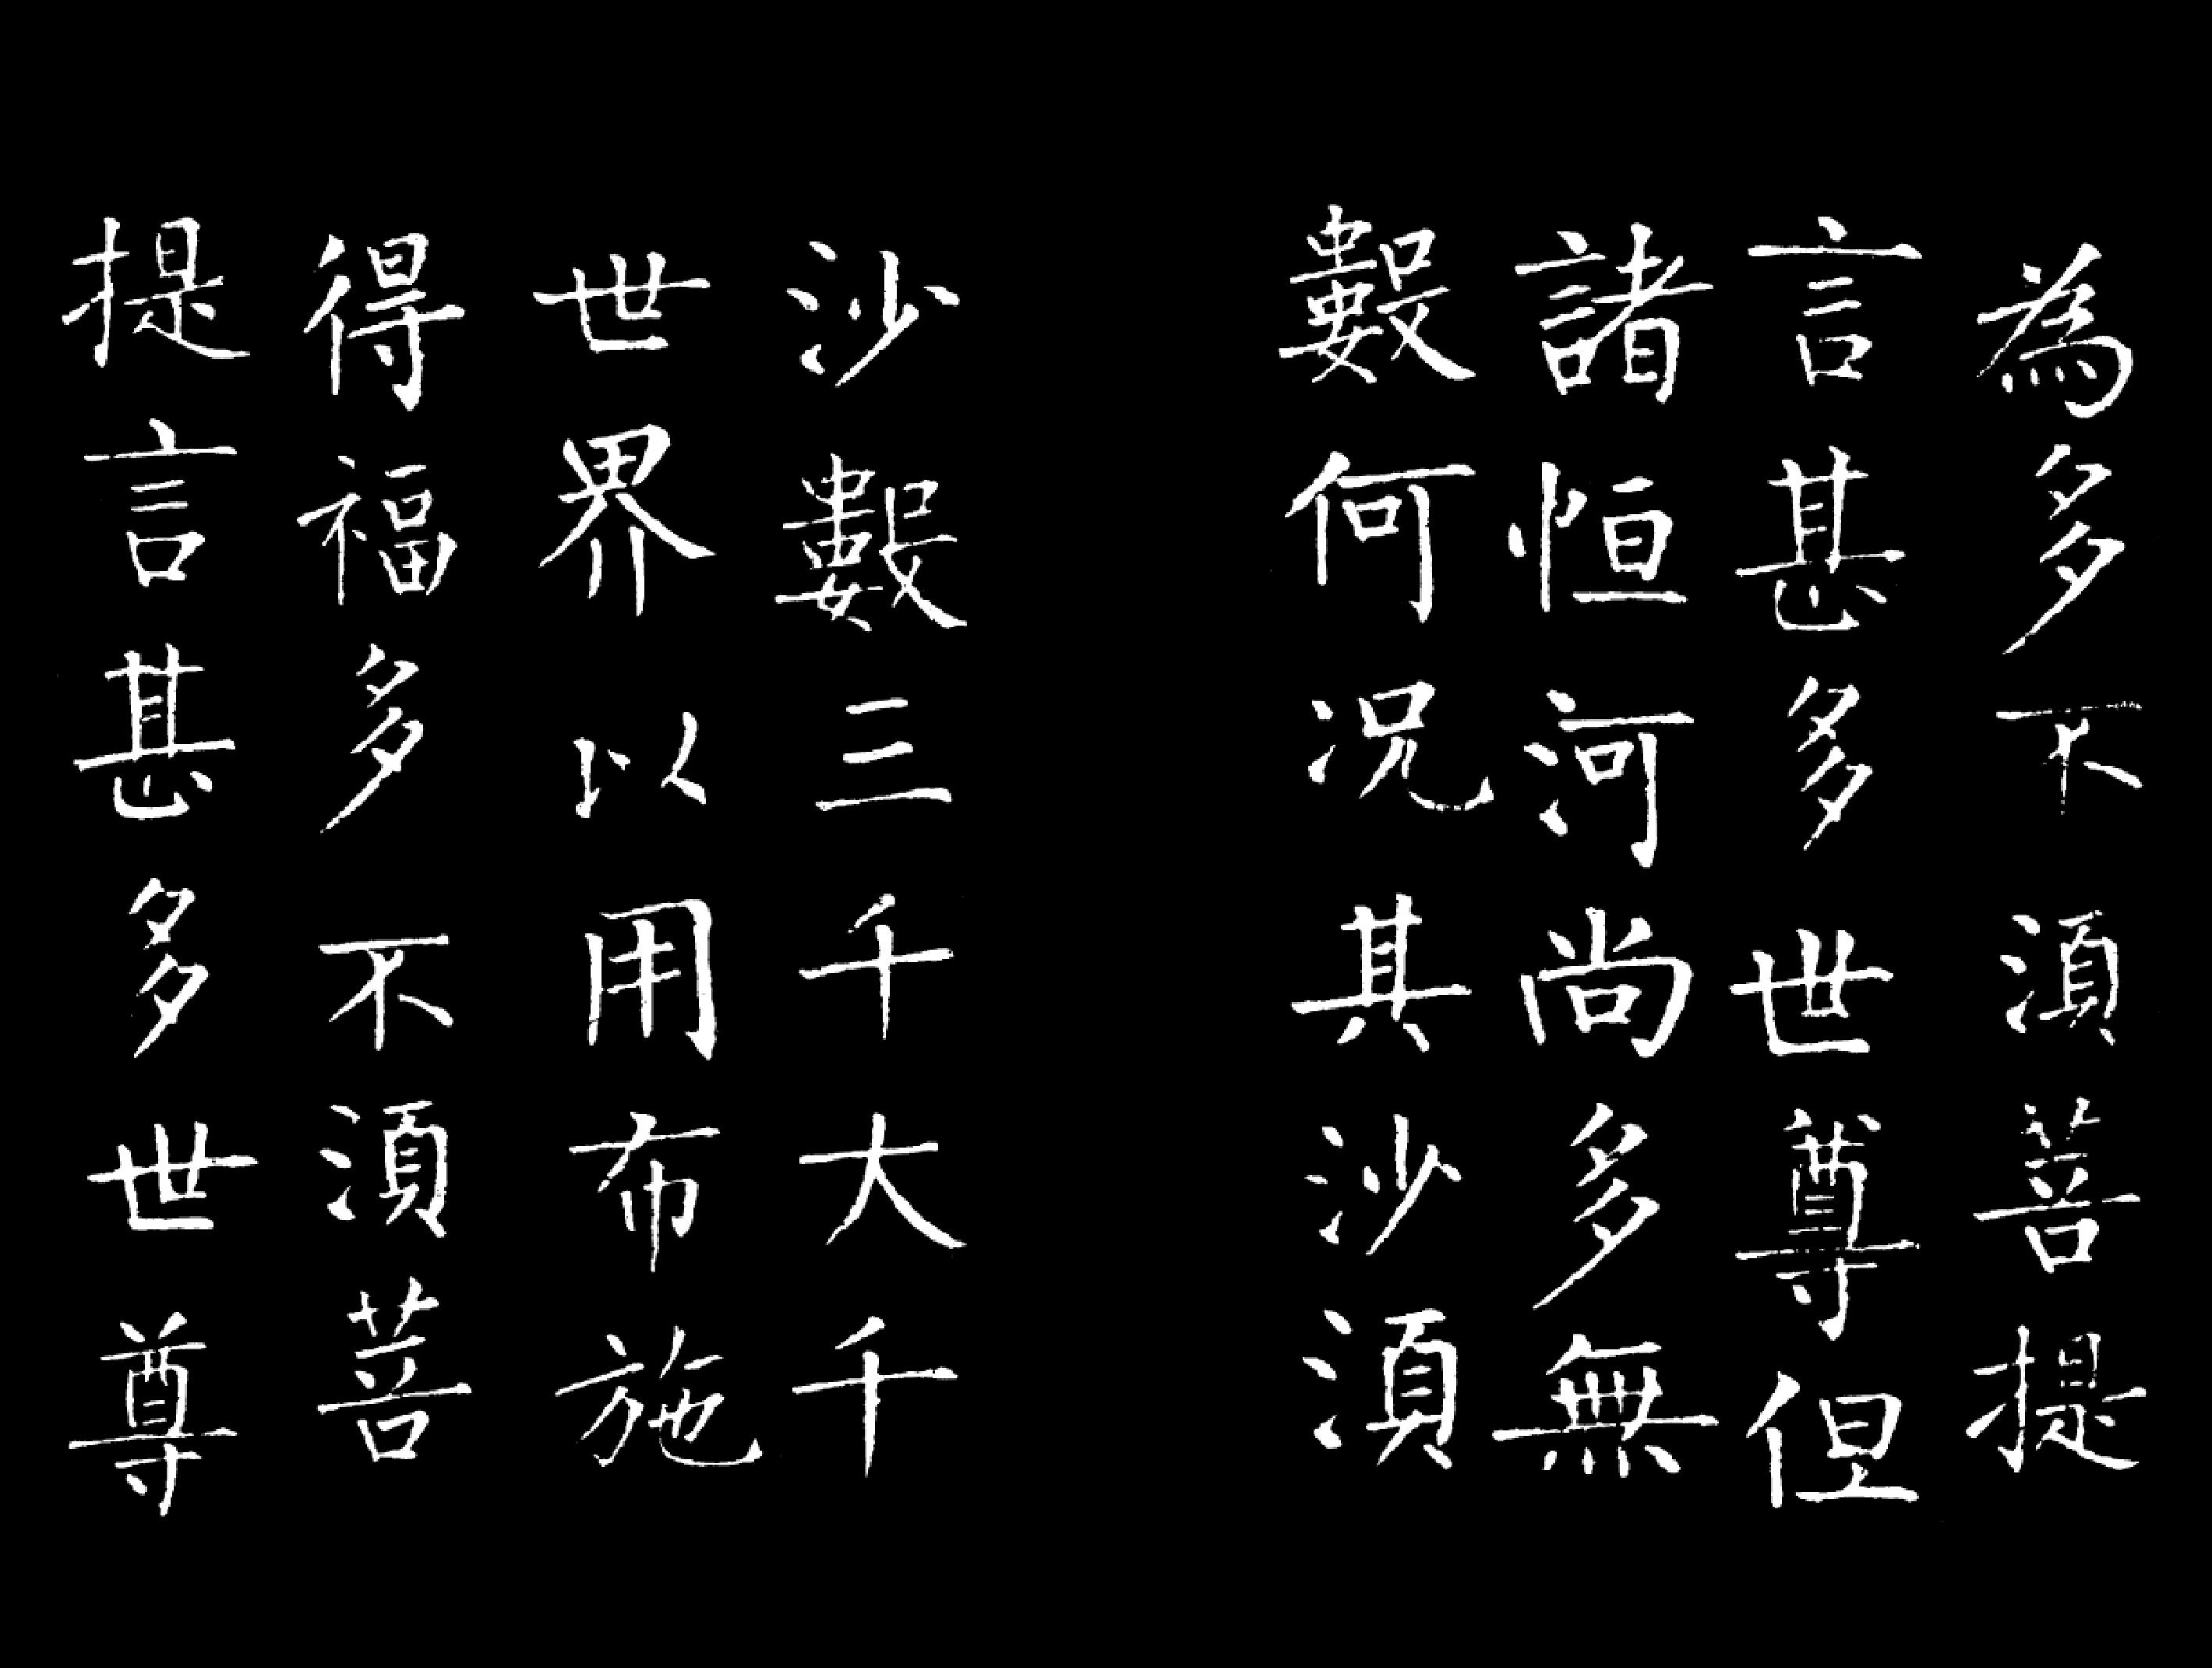 為多不湏菩提
言甚多世尊但
諸恒河尚多無
數何况其沙湏
沙數三千大千
世界以用布施
得福多不湏菩
提言甚多世尊